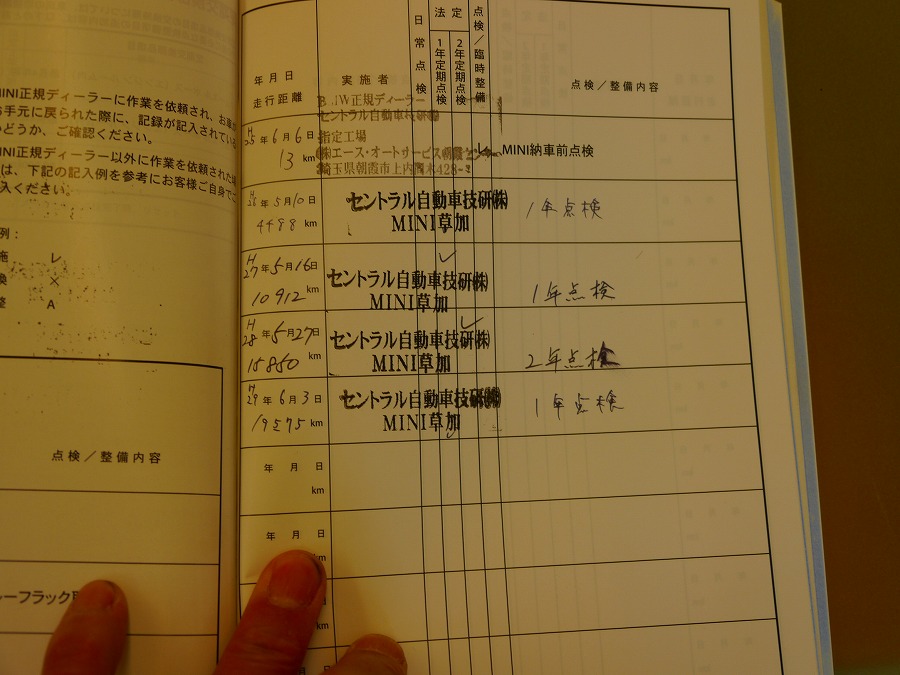 MINI正規ディーラーに作業を依頼され、お車が
お手元に戻られた際に、記録が記入されている
かどうか、ご確認ください。
MINI正規ディーラー以外に作業を依頼された
は、下記の記入例を参考にお客様ご自身で
入ください。
例：
施 レ
換 ×
整 A
点検／整備内容
ルーフラック
年月日
走行距離
実施者
日常点検
法定
1年定期点検
2年定期点検
点検／臨時整備
点検／整備内容
BMW正規ディーラー
セントラル自動車技研㈱
H25年6月6日
13 km
指定工場
㈱エース・オートサービス朝霞センター
埼玉県朝霞市上内間木428-
レ
MINI納車前点検
H26年5月10日
4488 km
セントラル自動車技研㈱
MINI草加
1年点検
H27年5月16日
10912 km
レ
セントラル自動車技研㈱
MINI草加
1年点検
H28年5月27日
15850 km
レ
セントラル自動車技研㈱
MINI草加
2年点検
H29年6月3日
19575 km
セントラル自動車技研㈱
MINI草加
レ
1年点検
年 月 日
km
年 月 日
km
km